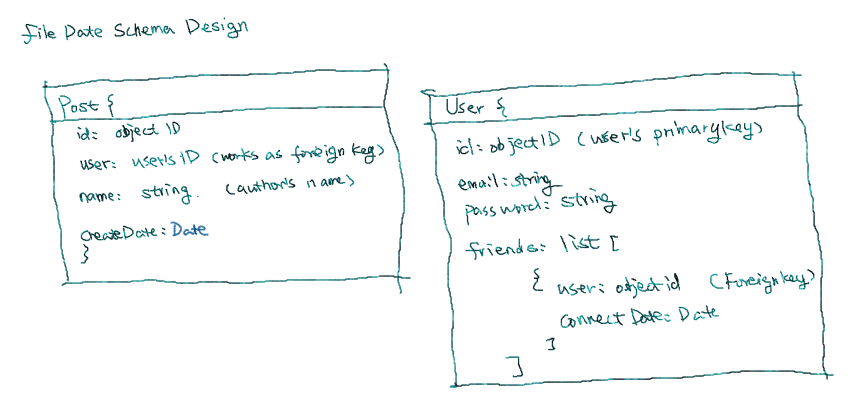 File Date Schema Design
Post {
id: object ID
user: user's ID (works as foreign key)
name: string. (author's name)
createDate: Date
}
User {
id: object ID (user's primarykey)
email: string
password: string
friends: list [
{ user: object id (Foreign key)
connect Date: Date
}
]